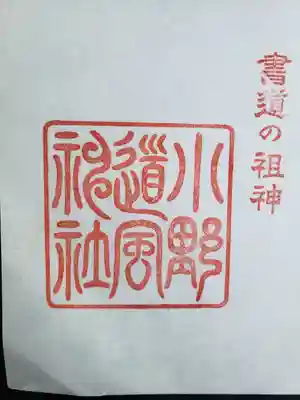 書道の祖神
小野
道風
神社